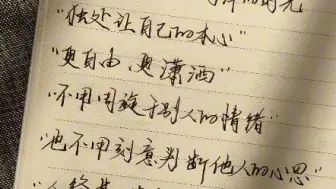 的时光
"独处让自己的本心"
"更自由、更潇洒"
不用周旋于别人的情绪"
"也不用刻意判断他人的心思"